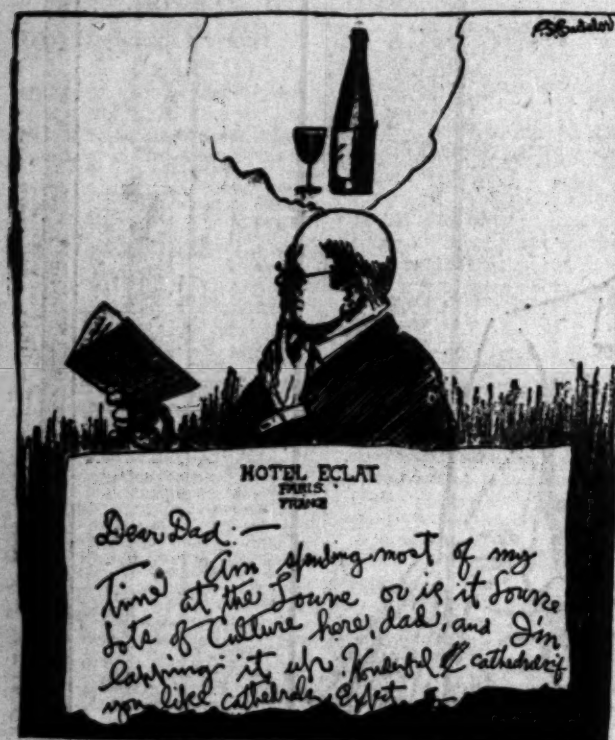 HOTEL ECLAT
PARIS.
FRANCE
Dear Dad:—
Am spending most of my
time at the Louvre or is it Louvre
Lots of Culture here, dad, and I'm
lapping it up. Wonderful cathedrals if
you like cathedrals. Expect